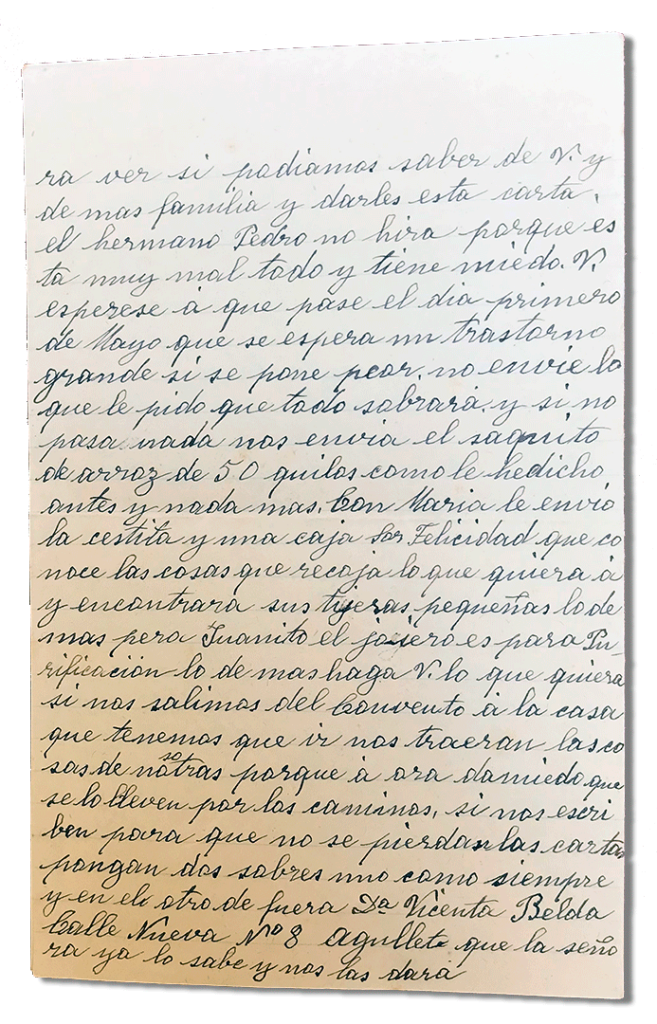 ra ver si podiamos saber de V. y
de mas familia y darles esta carta,
el hermano Pedro no hira porque es
ta muy mal todo y tiene miedo. V.
esperese á que pase el dia primero
de Mayo que se espera un trastorno
grande si se pone peor, no envie lo
que le pido que todo sobrará, y si no
pasa nada nos envia el saquito
de arroz de 50 quilos como le he dicho
antes y nada mas. Con Maria le envio
la cestita y una caja Sor Felicidad que co
noce las cosas que recoja lo que quiera á
y encontrara sus tijeras pequeñas lo de
mas pera Juanito el joyero es para Pu-
rificación lo de mas haga V. lo que quiera
si nos salimos del Convento á la casa
que tenemos que ir nos traeran las co
sas de nosotras porque á ora da miedo que
se lo lleven por los caminos, si nos escri
ben para que no se pierdan las cartas
pongan dos sobres uno como siempre
y en el otro de fuera Da Vicenta Belda
Calle Nueva No 8 Agullet que la seño
ra ya lo sabe y nos las dará